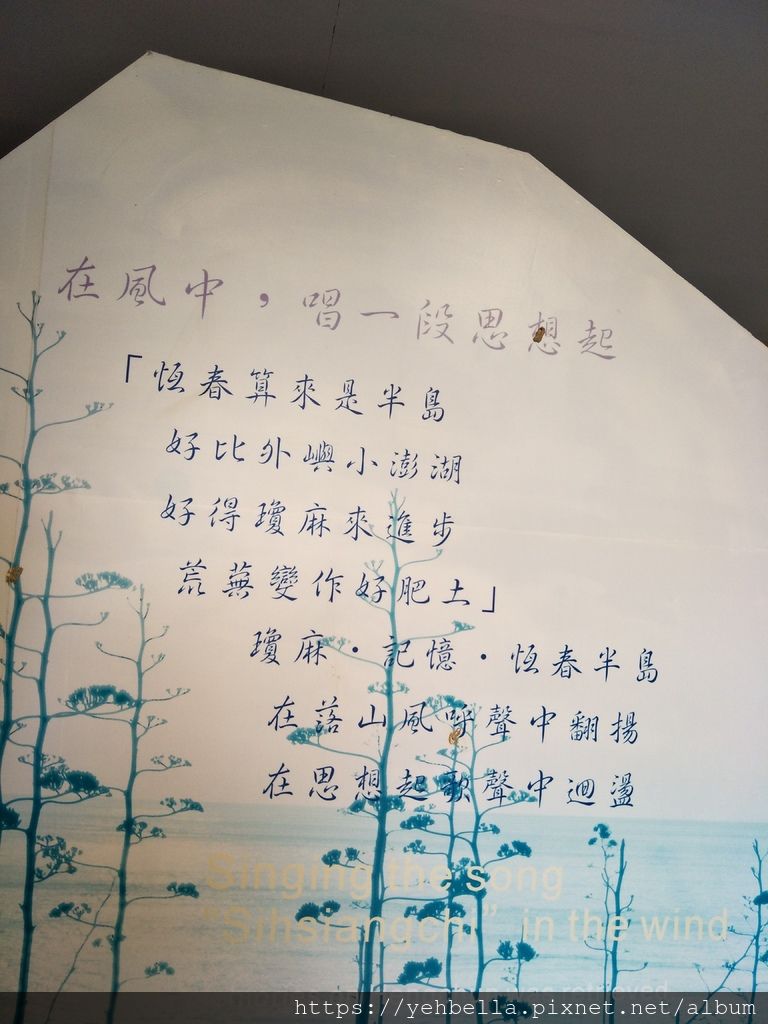 在風中，唱一段思想起
「恆春算來是半島
好比外嶼小澎湖
好得瓊麻來進步
荒蕪變作好肥土」
瓊麻・記憶・恆春半島
在落山風呼聲中翻揚
在思想起歌聲中迴盪
Singing the song
"Sihsiangchi" in the wind
was retrieved
https://yehbella.pixnet.net/album